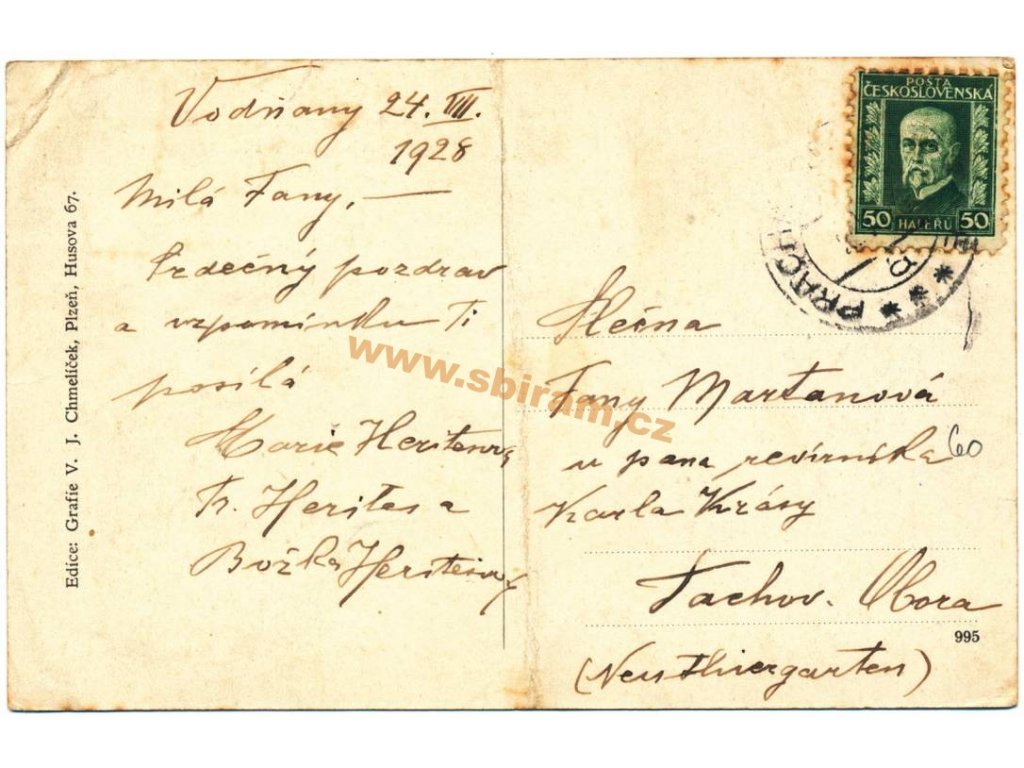 Vodňany 24. VII.
1928
Milá Fany, —
Srdečný pozdrav
a vzpomínku Ti
posílá
Marie Heritesová
Fr. Herites a
Božka Heritesová
Edice: Grafie V. J. Chmelíček, Plzeň, Husova 67.
POŠTA
ČESKOSLOVENSKÁ
50 HALÉŘŮ 50
PRACH
Slečna
Fany Martanová
u pana revírníka
60
Karla Krásy
Tachov. Obora
995
(Neu Thiergarten)
www.sbiram.cz